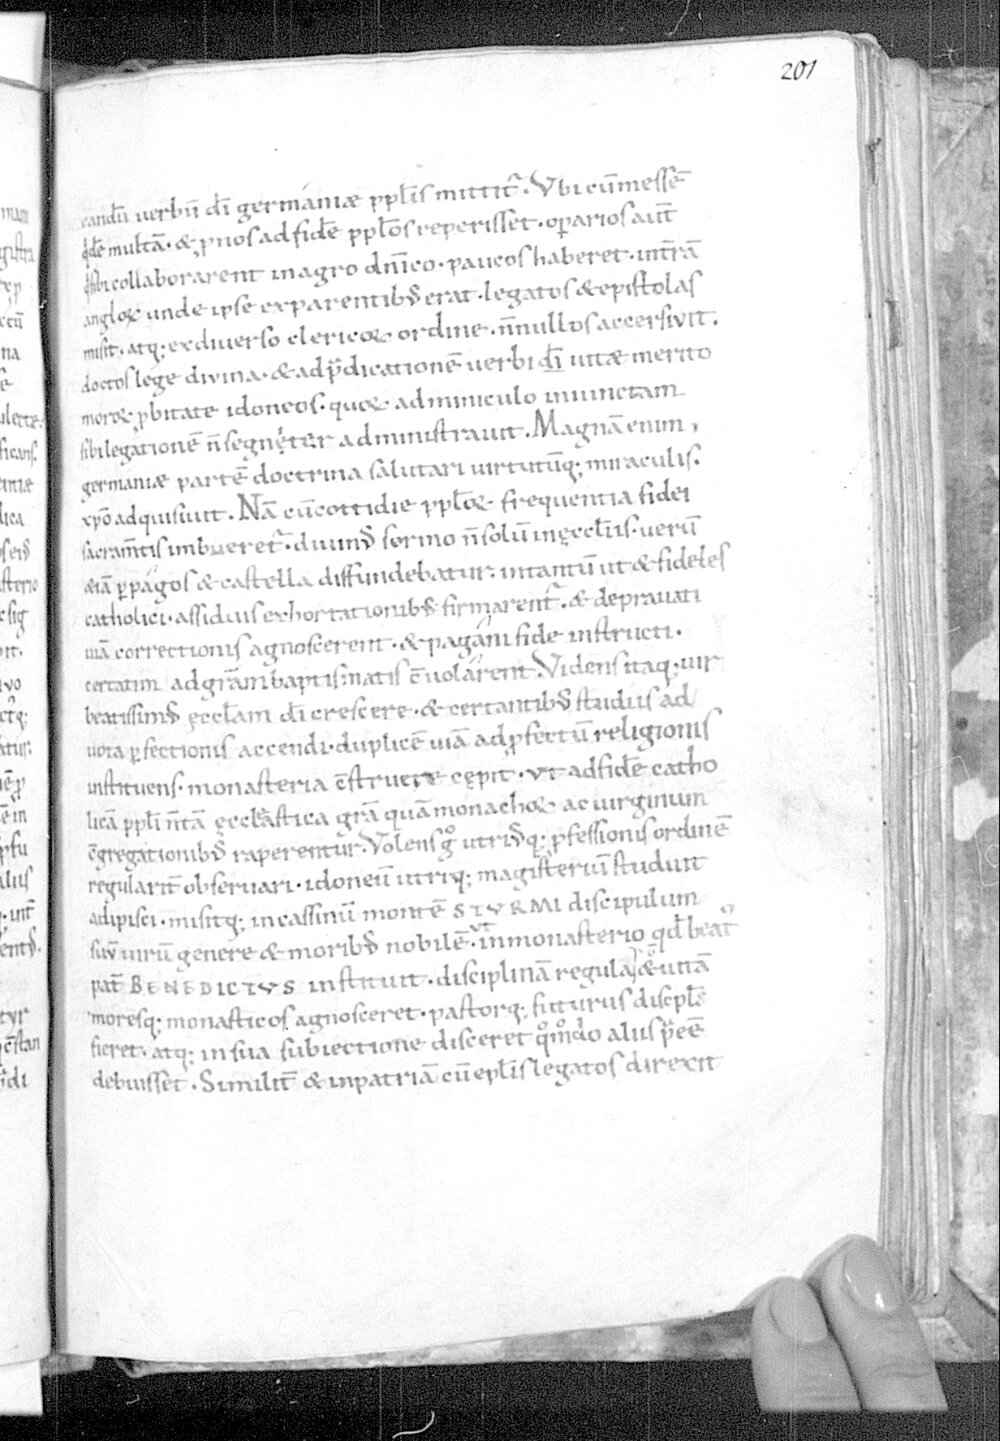 201
candū uerbū dī germaniæ pplis mittit᷑. Vbi cū messē
qͥdē multā. & ꝓnos ad fidē pplōs reperisset. oꝑarios aut̄
qͥ sibi collaborarent in agro dn̄ico. paucos haberet. int̄rā
angloꝝ unde ipse ex parentibꝰ erat. legatos & epistolas
misit. atq; ex diuerso clericoꝝ ordine. n̄nullos accersiuit.
doctos lege diuina. & ad p̄dicationē uerbi dī uitæ merito
moroꝝ ꝓbitate idoneos. quoꝝ adminiculo iniunctam
sibi legationē n̄ segnęter administrauit. Magnā enim
germaniæ partē doctrina salutari uirtutūq; miraculis.
xp̄o adquisiuit. Nā cū cottidie pploꝝ frequentia fidei
sacram̄tis imbueret᷑. diuinꝰ sermo n̄ solū in ęccl̄iis. uerū
&iā ꝑ pagos & castella diffundebatur. intantū ut & fideles
catholici. assiduis exhortationibꝰ firmarent᷑. & deprauati
uiā correctionis agnoscerent. & pagani fide instructi.
certatim ad gr̄am baptismatis c̄uolarent. Videns itaq; uir
beatissimꝰ ęccl̄am dī crescere. & certantibꝰ studiis ad
uota ꝑfectionis accendi. duplicē uiā ad ꝓfectū religionis
instituens. monasteria c̄struere cępit. vt ad fidē catho
licā ppli n̄ tā ęccl̄astica grā quā monachoꝝ ac uirginum
c̄gregationibꝰ raperentur. Volens gͦ utriꝰq; ꝓfessionis ordinē
regularit̄ obseruari. idoneū utriq; magisteriū studuit
adipisci. misitq; in cassinū montē STVRMI discipulum
suū uirū genere & moribꝰ nobilē. ut in monasterio qd̄ beat᷒
pat̄ BENEDICTVS instituit. disciplinā regularē & uitā
moresq; monasticos agnosceret. pastorq; futurus discipl̄s
fieret. atq; in sua subiectione disceret qͦmͦdo aliis p̄eē
debuisset. Similit̄ & in patriā cū epl̄is legatos direxit